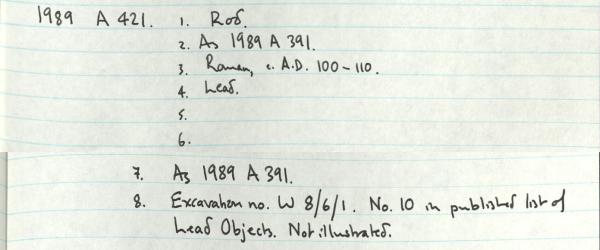 1989 A 421. 1. Rod.
2. As 1989 A 391.
3. Roman, c. A.D. 100-110.
4. Lead.
5.
6.
7. As 1989 A 391.
8. Excavation no. W 8/6/1. No. 10 in published list of
Lead Objects. Not illustrated.